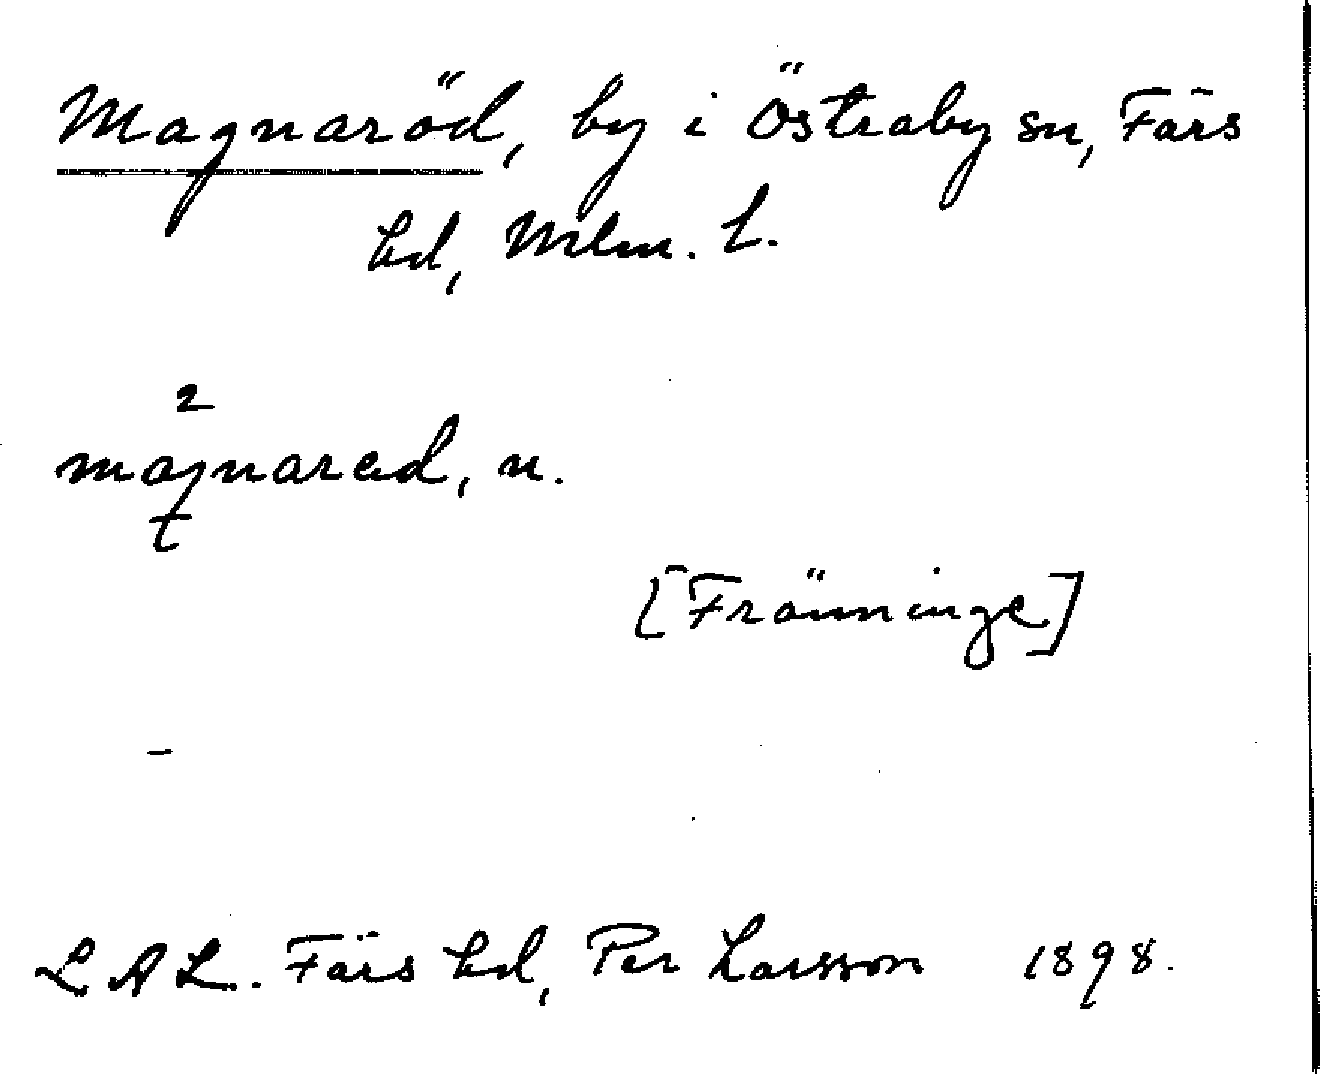 Magnaröd, by i Östraby sn, Färs
hd, Mlm. L.
2
magnared, n.
t
[Fränninge]
–
LAL. Färs hd, Per Larsson 1898.